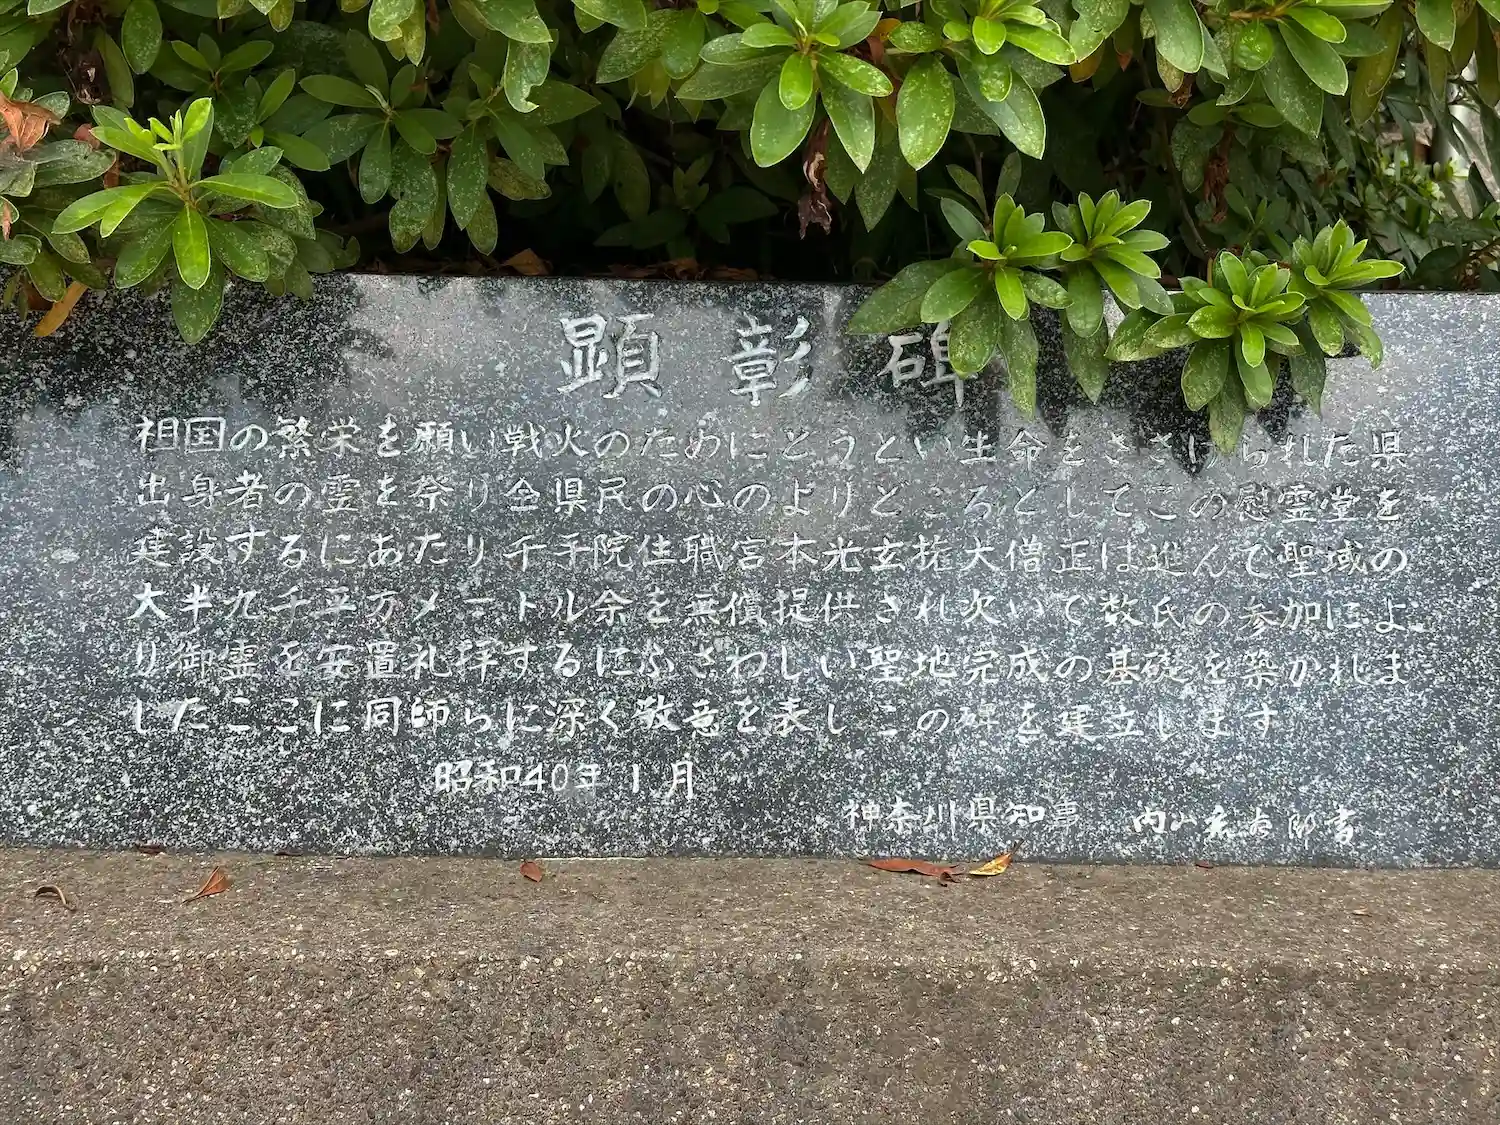 顕彰碑
祖国の繁栄を願い戦火のためにとうとい生命をささげられた県
出身者の霊を祭り全県民の心のよりどころとしてこの慰霊堂を
建設するにあたり千手院住職宮本光玄権大僧正は進んで聖域の
大半九千平方メートル余を無償提供され次いで数氏の参加によ
り御霊を安置礼拝するにふさわしい聖地完成の基礎を築かれま
したここに同師らに深く敬意を表しこの碑を建立します
昭和40年1月
神奈川県知事 内山岩太郎書